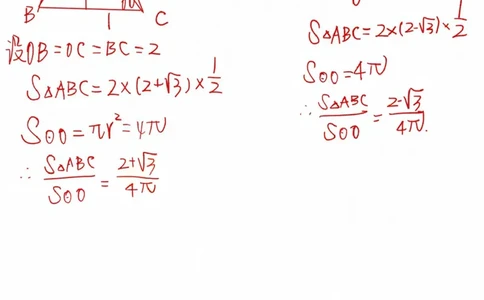 B 1 C
设OB=OC=BC=2
S△ABC=2×(2+√3)×1/2
S⊙O=πr²=4π
∴ S△ABC/S⊙O = 2+√3/4π
S△ABC=2×(2-√3)×1/2
S⊙O=4π
∴ S△ABC/S⊙O = 2-√3/4π.